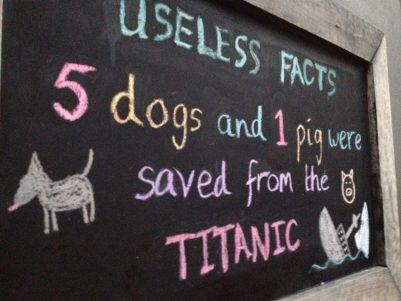 USELESS FACTS
5 dogs and 1 pig were
saved from the
TITANIC